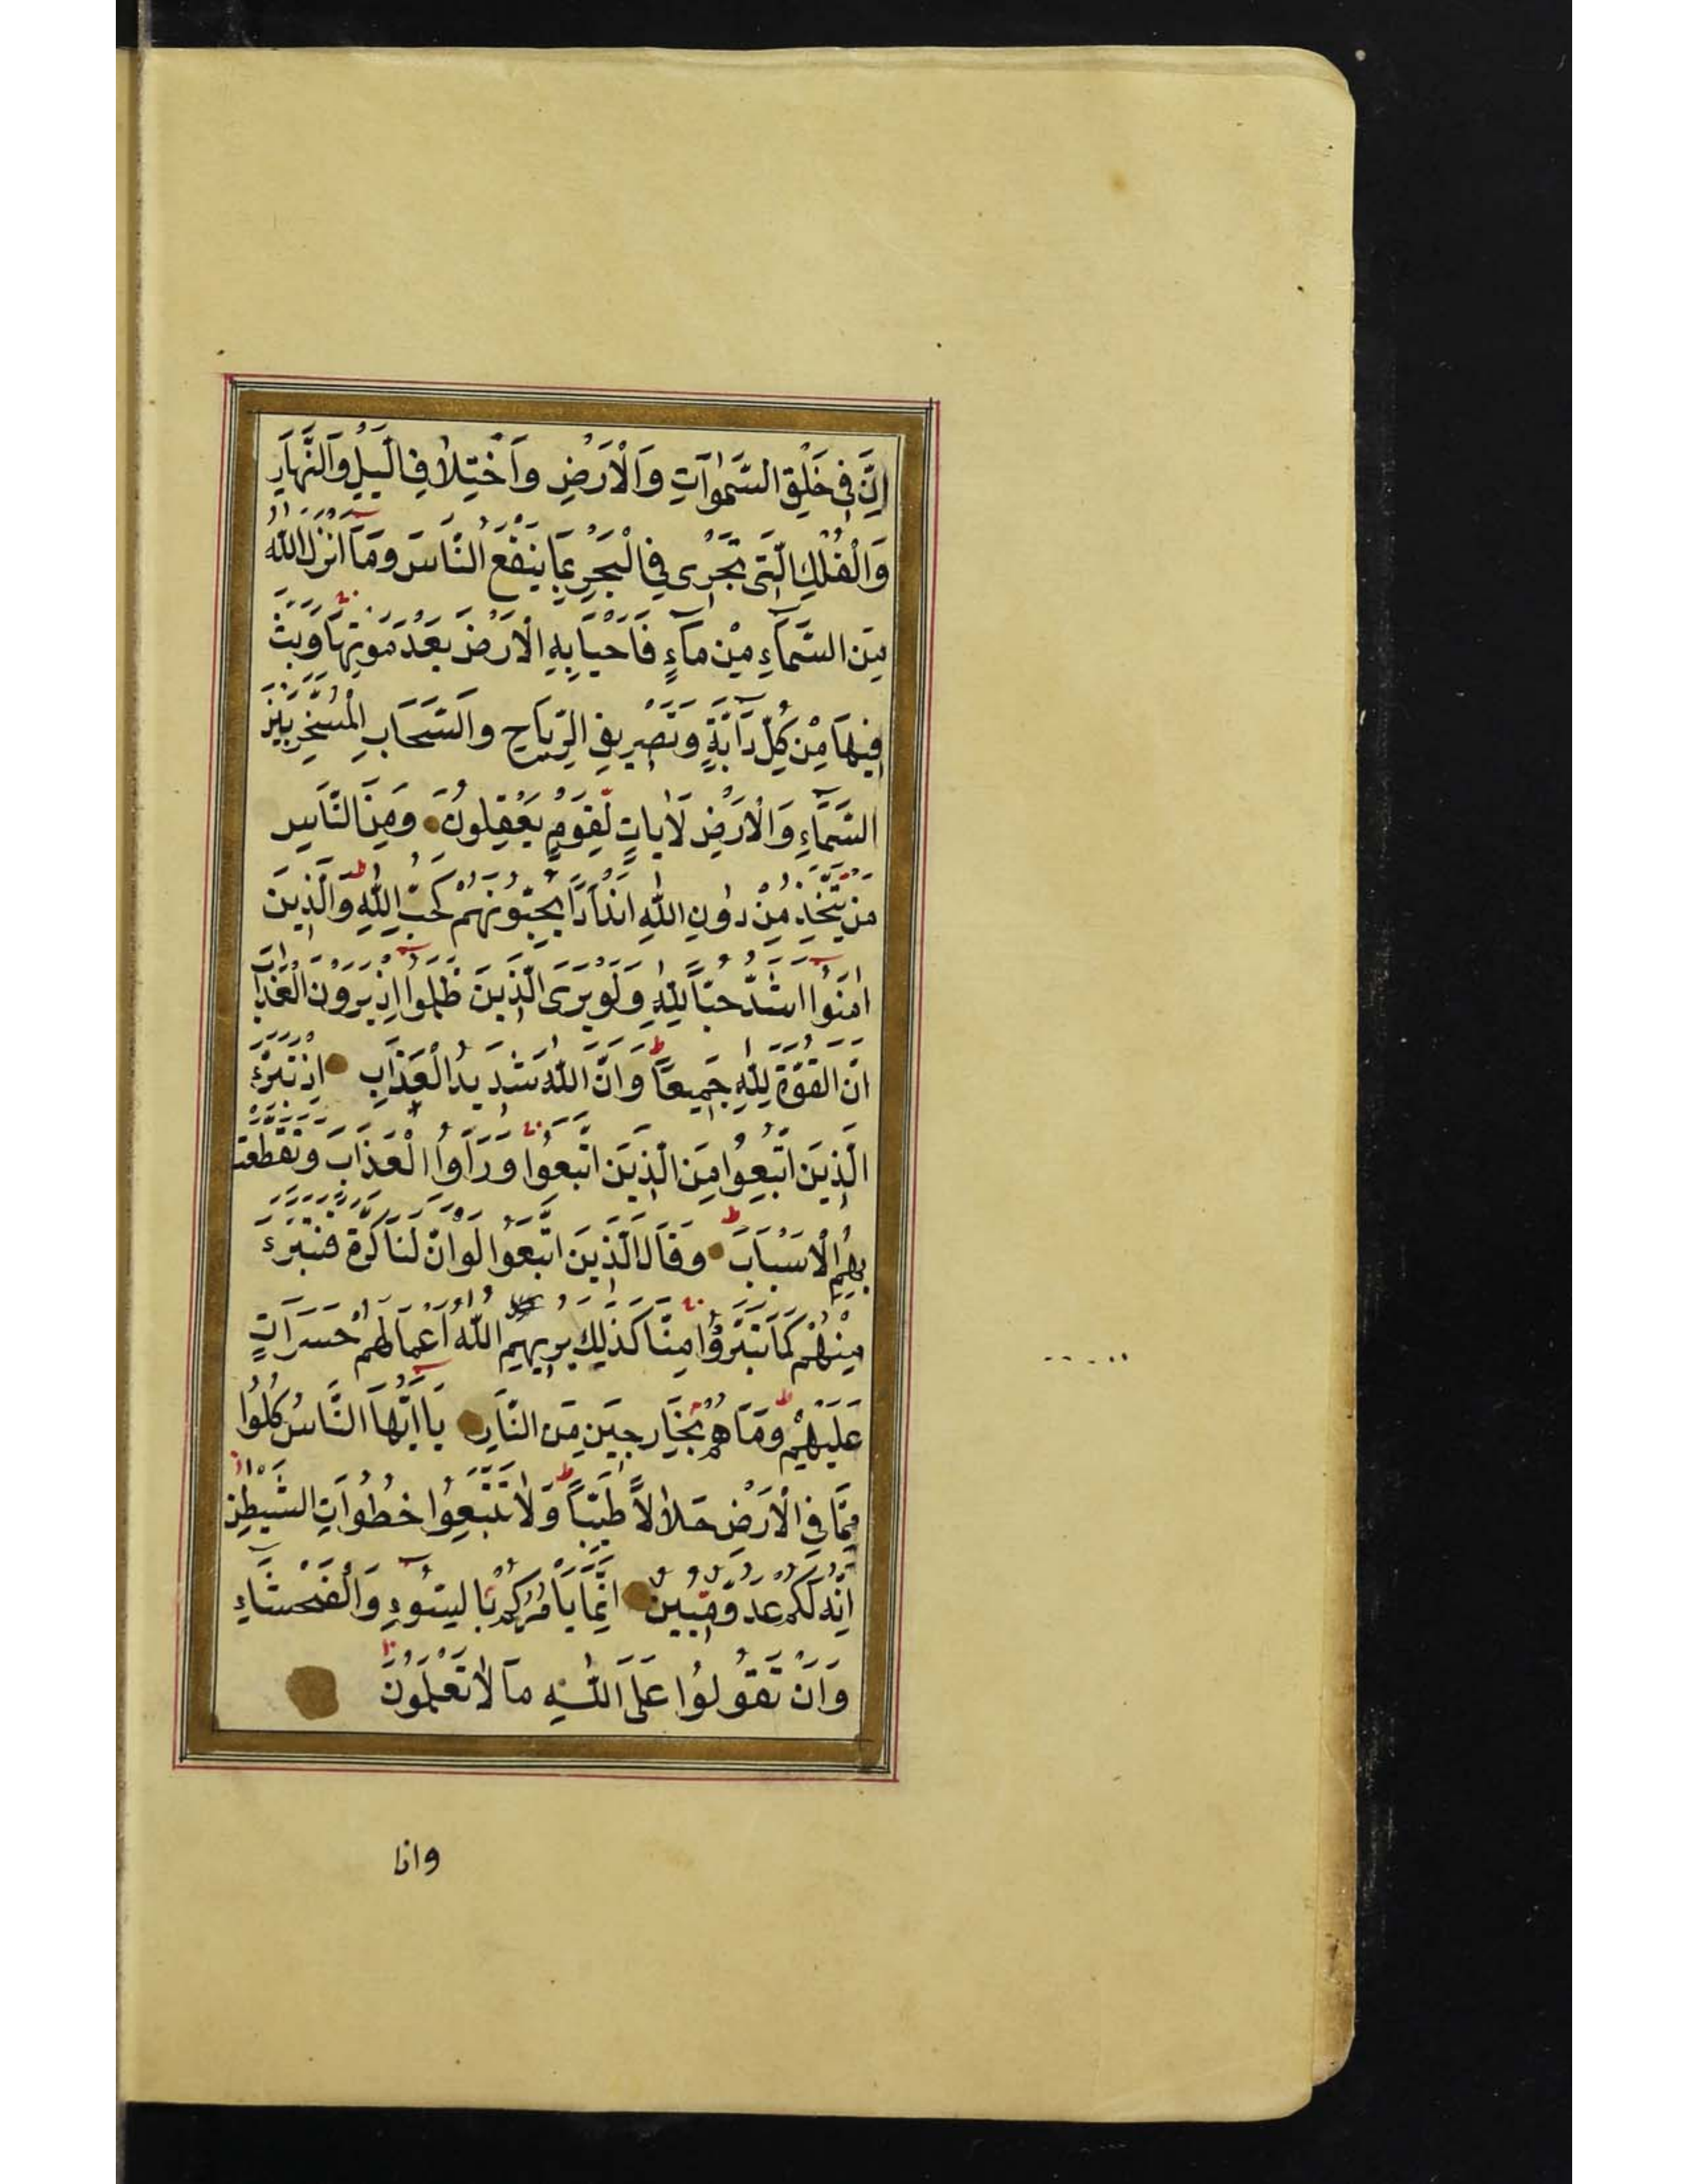 اِنَّ فِي خَلْقِ السَّمٰوَاتِ وَالْاَرْضِ وَاخْتِلَافِ الَّيْلِ وَالنَّهَارِ
وَالْفُلْكِ الَّتِي تَجْرِي فِي الْبَحْرِ بِمَا يَنْفَعُ النَّاسَ وَمَا اَنْزَلَ اللّٰهُ
مِنَ السَّمَاءِ مِنْ مَاءٍ فَاَحْيَا بِهِ الْاَرْضَ بَعْدَ مَوْتِهَا وَبَثَّ
فِيهَا مِنْ كُلِّ دَابَّةٍ وَتَصْرِيفِ الرِّيَاحِ وَالسَّحَابِ الْمُسَخَّرِ بَيْنَ
السَّمَاءِ وَالْاَرْضِ لَاٰيَاتٍ لِقَوْمٍ يَعْقِلُونَ وَمِنَ النَّاسِ
مَنْ يَتَّخِذُ مِنْ دُونِ اللّٰهِ اَنْدَادًا يُحِبُّونَهُمْ كَحُبِّ اللّٰهِ وَالَّذِينَ
اٰمَنُوا اَشَدُّ حُبًّا لِلّٰهِ وَلَوْ يَرَى الَّذِينَ ظَلَمُوا اِذْ يَرَوْنَ الْعَذَابَ
اَنَّ الْقُوَّةَ لِلّٰهِ جَمِيعًا وَاَنَّ اللّٰهَ شَدِيدُ الْعَذَابِ اِذْ تَبَرَّءَ
الَّذِينَ اتُّبِعُوا مِنَ الَّذِينَ اتَّبَعُوا وَرَاَوُا الْعَذَابَ وَتَقَطَّعَتْ
بِهِمُ الْاَسْبَابُ وَقَالَ الَّذِينَ اتَّبَعُوا لَوْ اَنَّ لَنَا كَرَّةً فَنَتَبَرَّءَ
مِنْهُمْ كَمَا تَبَرَّؤُا مِنَّا كَذٰلِكَ يُرِيهِمُ اللّٰهُ اَعْمَالَهُمْ حَسَرَاتٍ
عَلَيْهِمْ وَمَا هُمْ بِخَارِجِينَ مِنَ النَّارِ يَا اَيُّهَا النَّاسُ كُلُوا
مِمَّا فِي الْاَرْضِ حَلَالًا طَيِّبًا وَلَا تَتَّبِعُوا خُطُوَاتِ الشَّيْطٰنِ
اِنَّهُ لَكُمْ عَدُوٌّ مُبِينٌ اِنَّمَا يَاْمُرُكُمْ بِالسُّوءِ وَالْفَحْشَاءِ
وَاَنْ تَقُولُوا عَلَى اللّٰهِ مَا لَا تَعْلَمُونَ
واذا